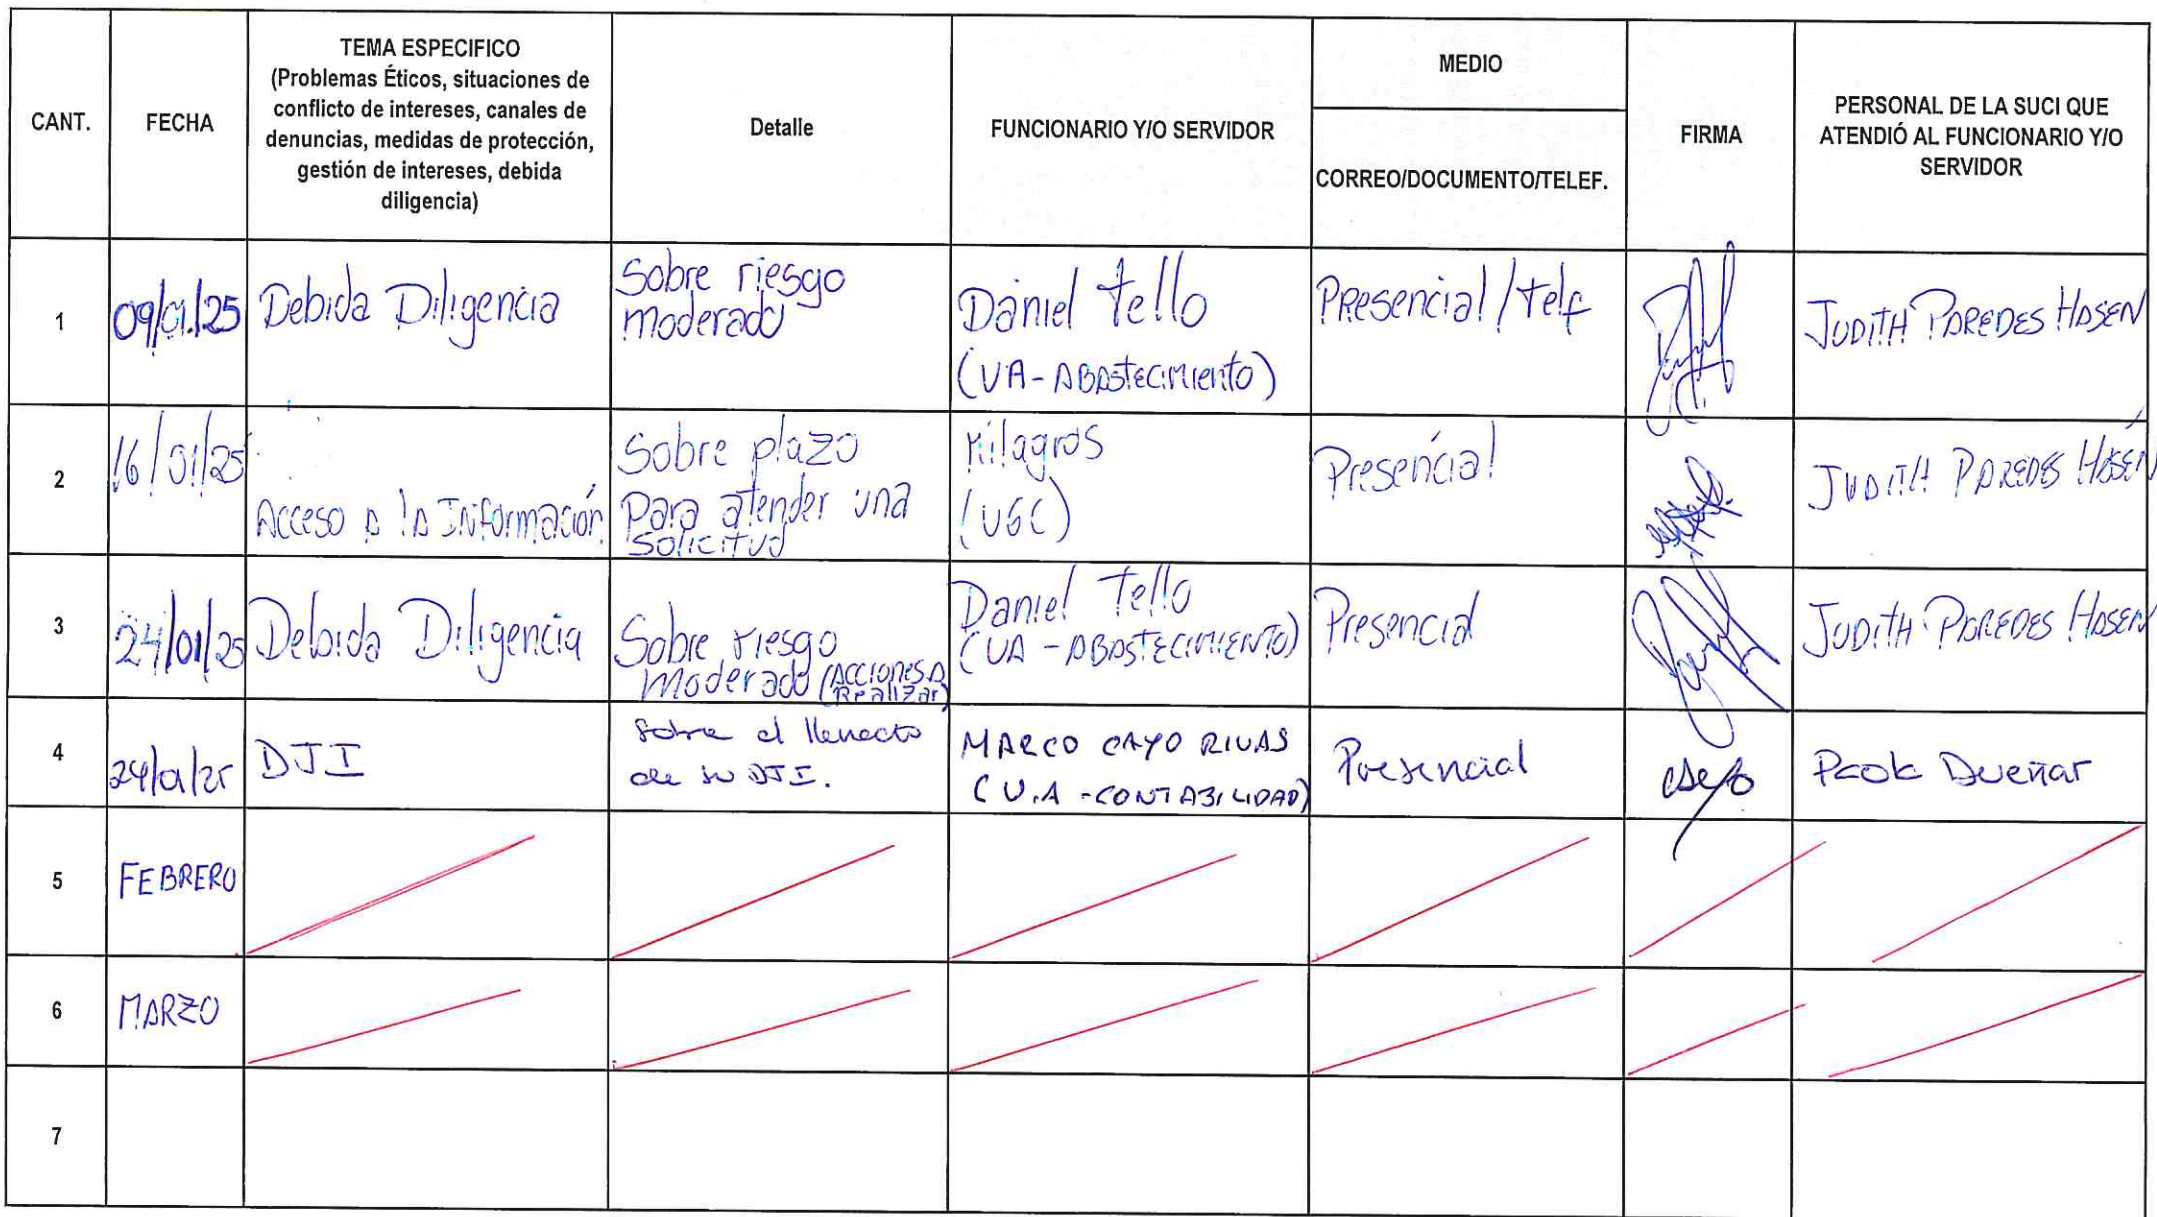 CANT.
FECHA
TEMA ESPECIFICO
(Problemas Éticos, situaciones de
conflicto de intereses, canales de
denuncias, medidas de protección,
gestión de intereses, debida
diligencia)
Detalle
FUNCIONARIO Y/O SERVIDOR
MEDIO
CORREO/DOCUMENTO/TELEF.
FIRMA
PERSONAL DE LA SUCI QUE
ATENDIÓ AL FUNCIONARIO Y/O
SERVIDOR
1
09/01/25
Debida Diligencia
Sobre riesgo
moderado
Daniel Tello
(UA-ABASTECIMIENTO)
Presencial/Telf
JUDITH PAREDES HASEN
2
16/01/25
Acceso a la Información
Sobre plazo
Para atender una
solicitud
Milagros
(UGC)
Presencial
JUDITH PAREDES HASEN
3
24/01/25
Debida Diligencia
Sobre riesgo
moderado (ACCIONES A
Realizar)
Daniel Tello
(UA-ABASTECIMIENTO)
Presencial
JUDITH PAREDES HASEN
4
24/01/25
DJI
Sobre el llenado
de su DJI.
MARCO CAYO RIVAS
(U.A-CONTABILIDAD)
Presencial
Dueñas
5
FEBRERO
6
MARZO
7